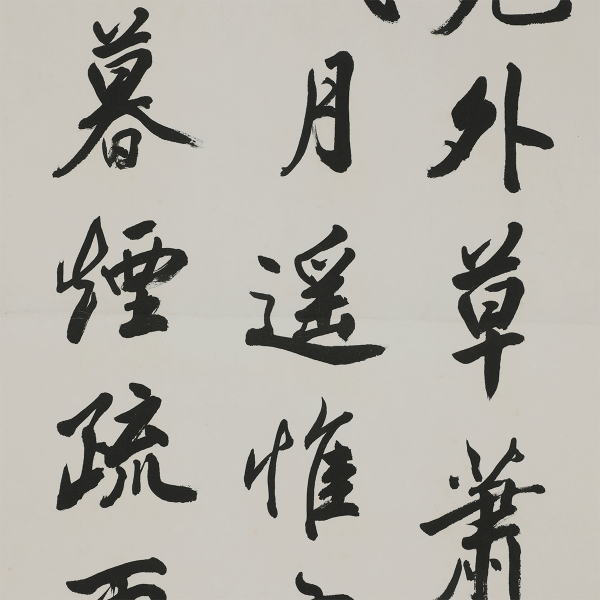 外草蕭
月遥惟
暮煙疏